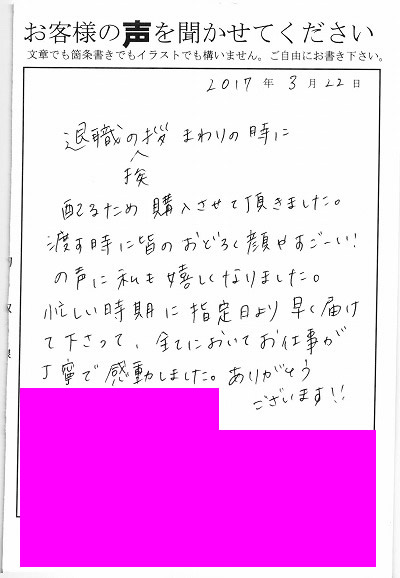 お客様の声を聞かせてください
文章でも箇条書きでもイラストでも構いません。ご自由にお書き下さい。
2017年3月22日
退職の挨拶まわりの時に
配るため購入させて頂きました。
渡す時に皆のおどろく顔やすごーい!
の声に私も嬉しくなりました。
忙しい時期に指定日より早く届け
て下さって、全てにおいてお仕事が
丁寧で感動しました。ありがとう
ございます!!